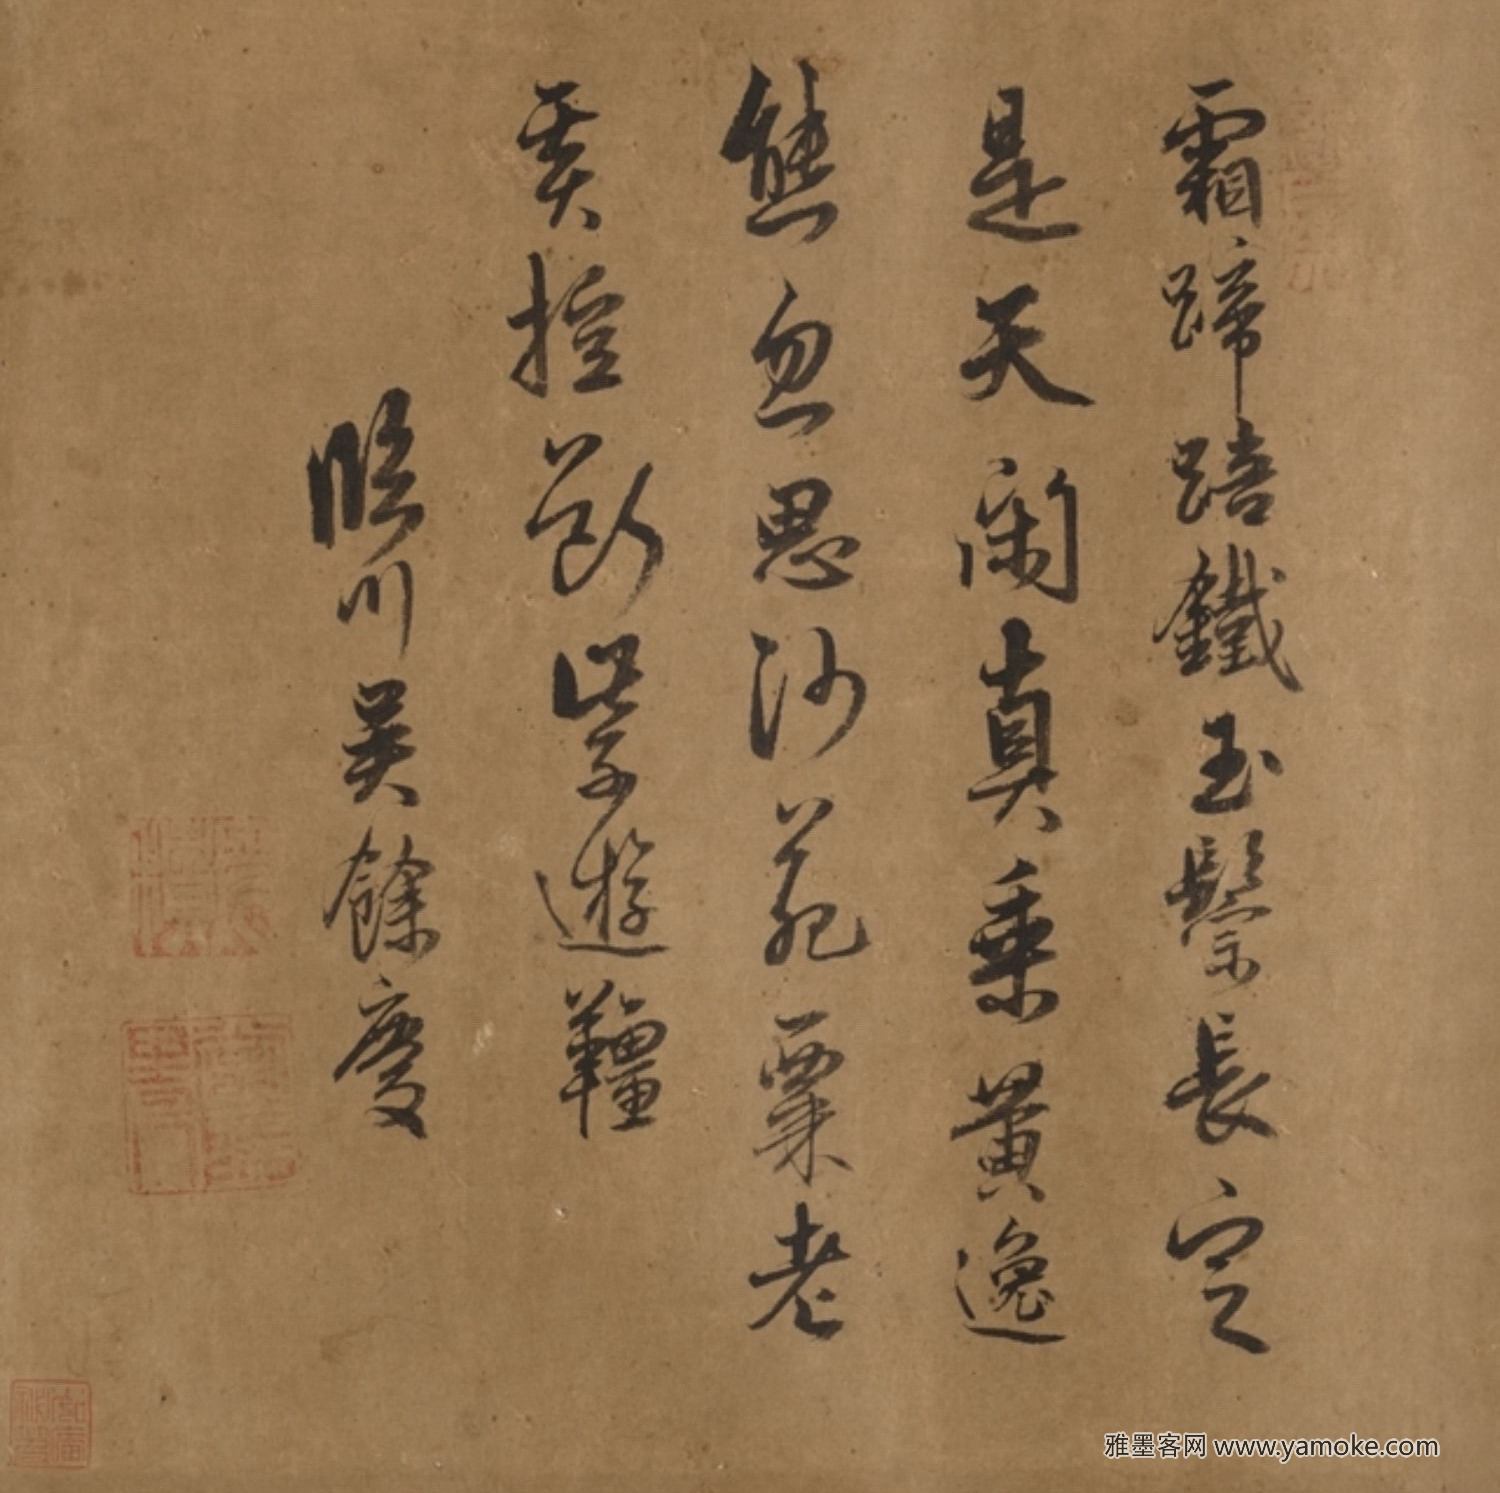 霜蹄踣鐵玉鬃長定
是天閑真乘黃逸
態忽思沙苑粟老
奚控斷紫遊韁
臨川吳餘慶
雅墨客网 www.yamoke.com